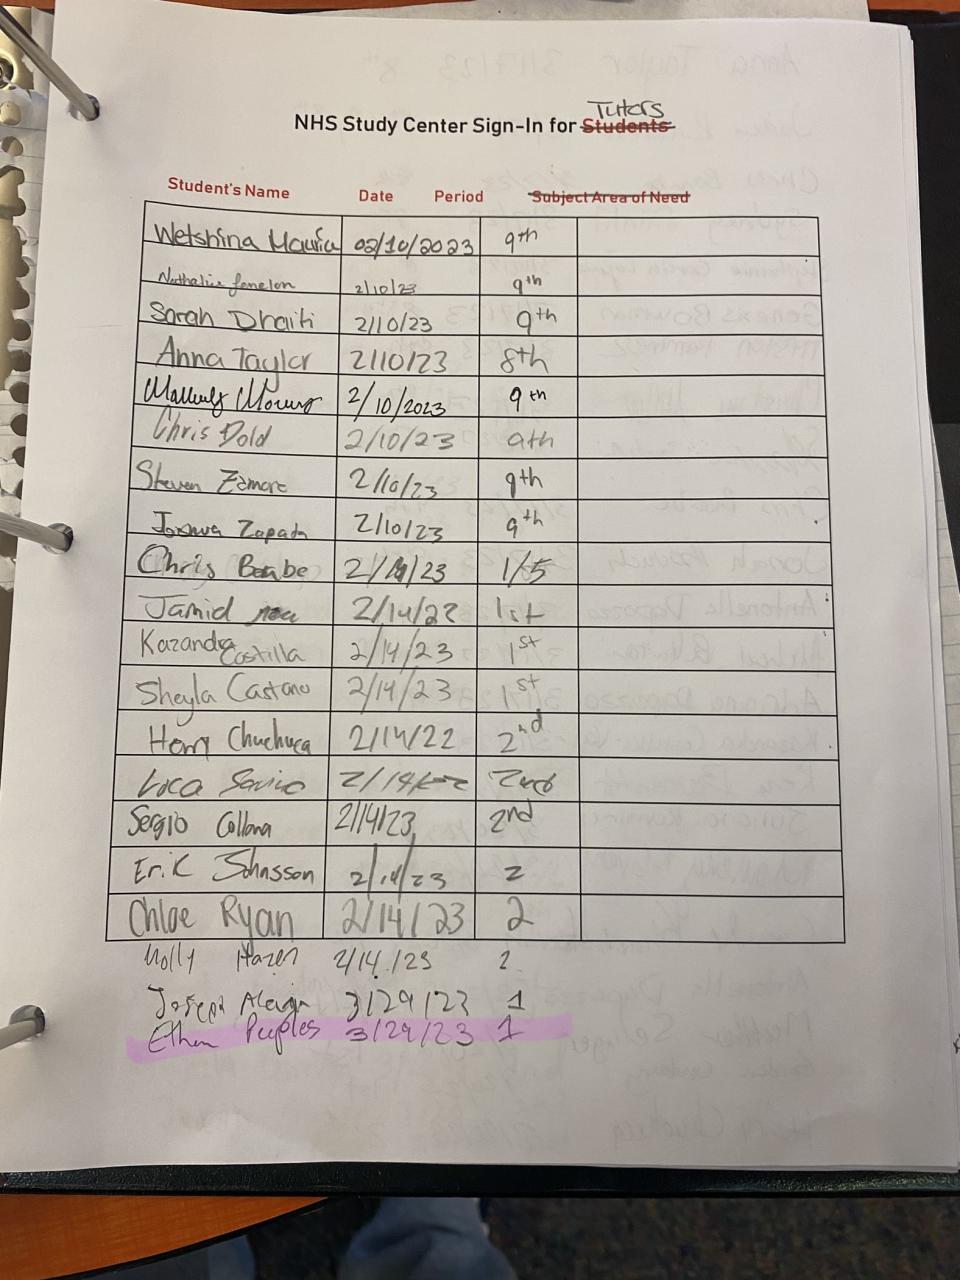 Tutors
NHS Study Center Sign-In for Students
Student's Name Date Period Subject Area of Need
Wetshina 02/10/2023 9th
Nathalie fenelon 2/10/23 9th
Sarah Dhaiti 2/10/23 9th
Anna Taylor 2/10/23 8th
2/10/2023 9th
Chris Dold 2/10/23 9th
Steven Zamora 2/10/23 9th
Joshua Zapata 2/10/23 9th
Chris Beabe 2/14/23 1/5
Jamid 2/14/22 1st
Kazandra Costilla 2/14/23 1st
Sheyla Castano 2/14/23 1st
Henry Chuchuca 2/14/22 2nd
Luca Savino 2/14/22 2nd
Sergio Collana 2/14/23 2nd
Erik Johnsson 2/14/23 2
Chloe Ryan 2/14/23 2
Molly Hazen 2/14/23 2
Joseph 3/29/23 1
Ethan Peoples 3/29/23 1